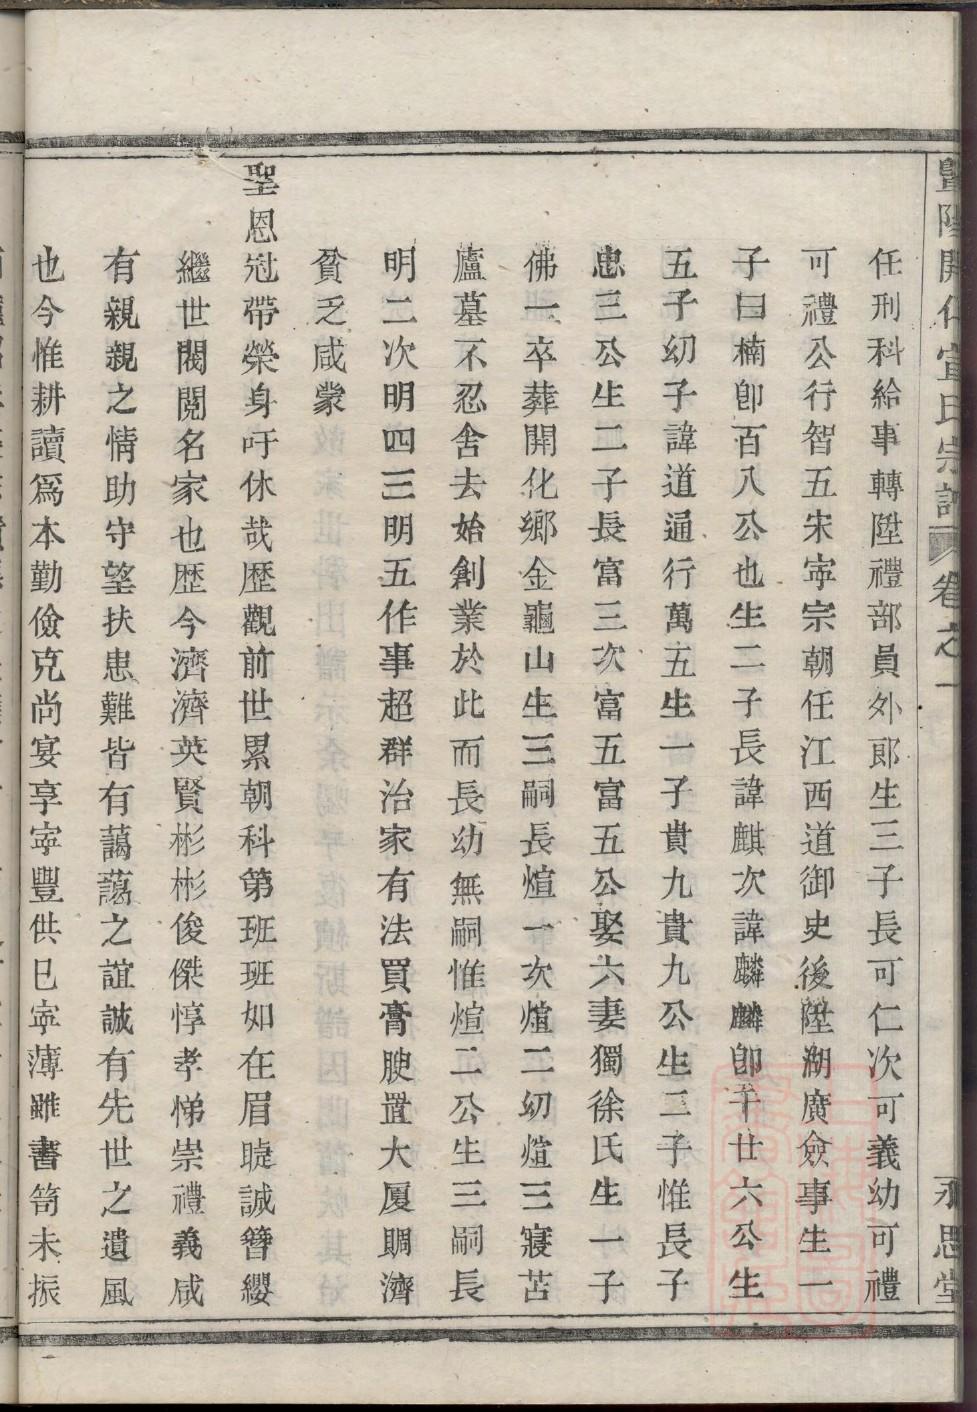 暨陽開化宣氏宗譜 卷之一 永思堂
任刑科給事轉陞禮部員外郎生三子長可仁次可義幼可禮
可禮公行智五宋寧宗朝任江西道御史後陞湖廣僉事生一
子曰楠卽百八公也生二子長諱麒次諱麟麟卽千廿六公生
五子幼子諱道通行萬五生一子貴九貴九公生三子惟長子
忠三公生二子長富三次富五富五公娶六妻獨徐氏生一子
佛一卒葬開化鄉金龜山生三嗣長煊一次煊二幼煊三寢苫
廬墓不忍舍去始創業於此而長幼無嗣惟煊二公生三嗣長
明二次明四三明五作事超群治家有法買膏腴置大厦賙濟
貧乏咸蒙
聖恩冠帶榮身吁休哉歷觀前世累朝科第班班如在眉睫誠簪纓
繼世閥閱名家也歷今濟濟英賢彬彬俊傑惇孝悌崇禮義咸
有親親之情助守望扶患難皆有藹藹之誼誠有先世之遺風
也今惟耕讀爲本勤儉克尚宴享寧豐供已寧薄雖書笥未振